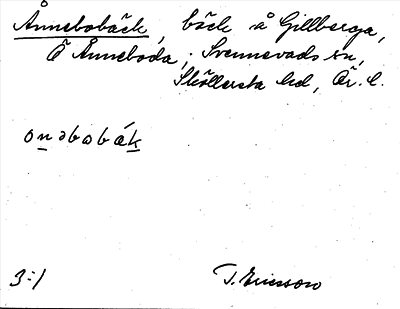 Ånnebobäck, bäck å Gillberga,
Ö Ånneboda, Svennevads sn,
Sköllersta hd, Ör. l.
onəbobäk
3:1
T. Ericsson